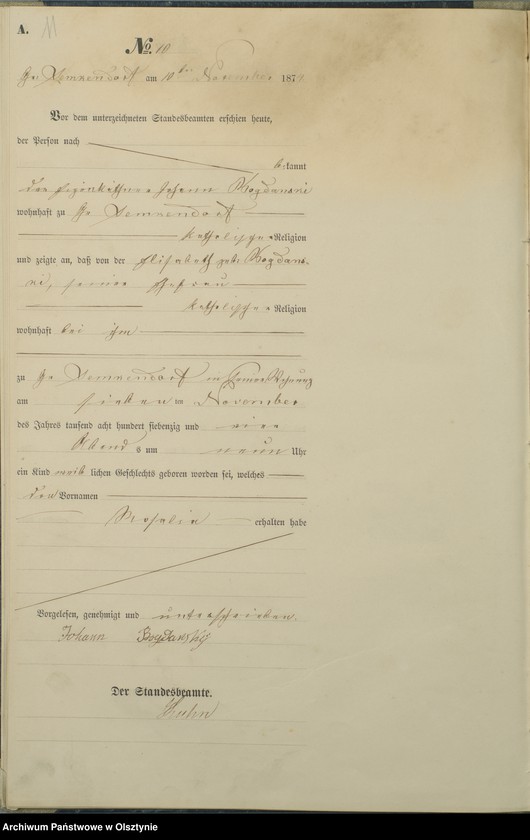 A. 11
No. 10
Gr. am 10ten November 187
Vor dem unterzeichneten Standesbeamten erschien heute,
der Person nach
bekannt
der Johann Bogdanski
wohnhaft zu Gr.
katholischer Religion
und zeigte an, daß von der Elisabeth geb. Bogdans-
ki, seiner Ehefrau
katholischer Religion
wohnhaft bei ihm
zu Gr. in seiner Wohnung
am sieben ten November
des Jahres tausend acht hundert siebenzig und vier
Abend s um neun Uhr
ein Kind weib lichen Geschlechts geboren worden sei, welches
den Vornamen
Rosalia erhalten habe
Vorgelesen, genehmigt und unterschrieben.
Johann Bogdanskÿ
Der Standesbeamte.
Archiwum Państwowe w Olsztynie